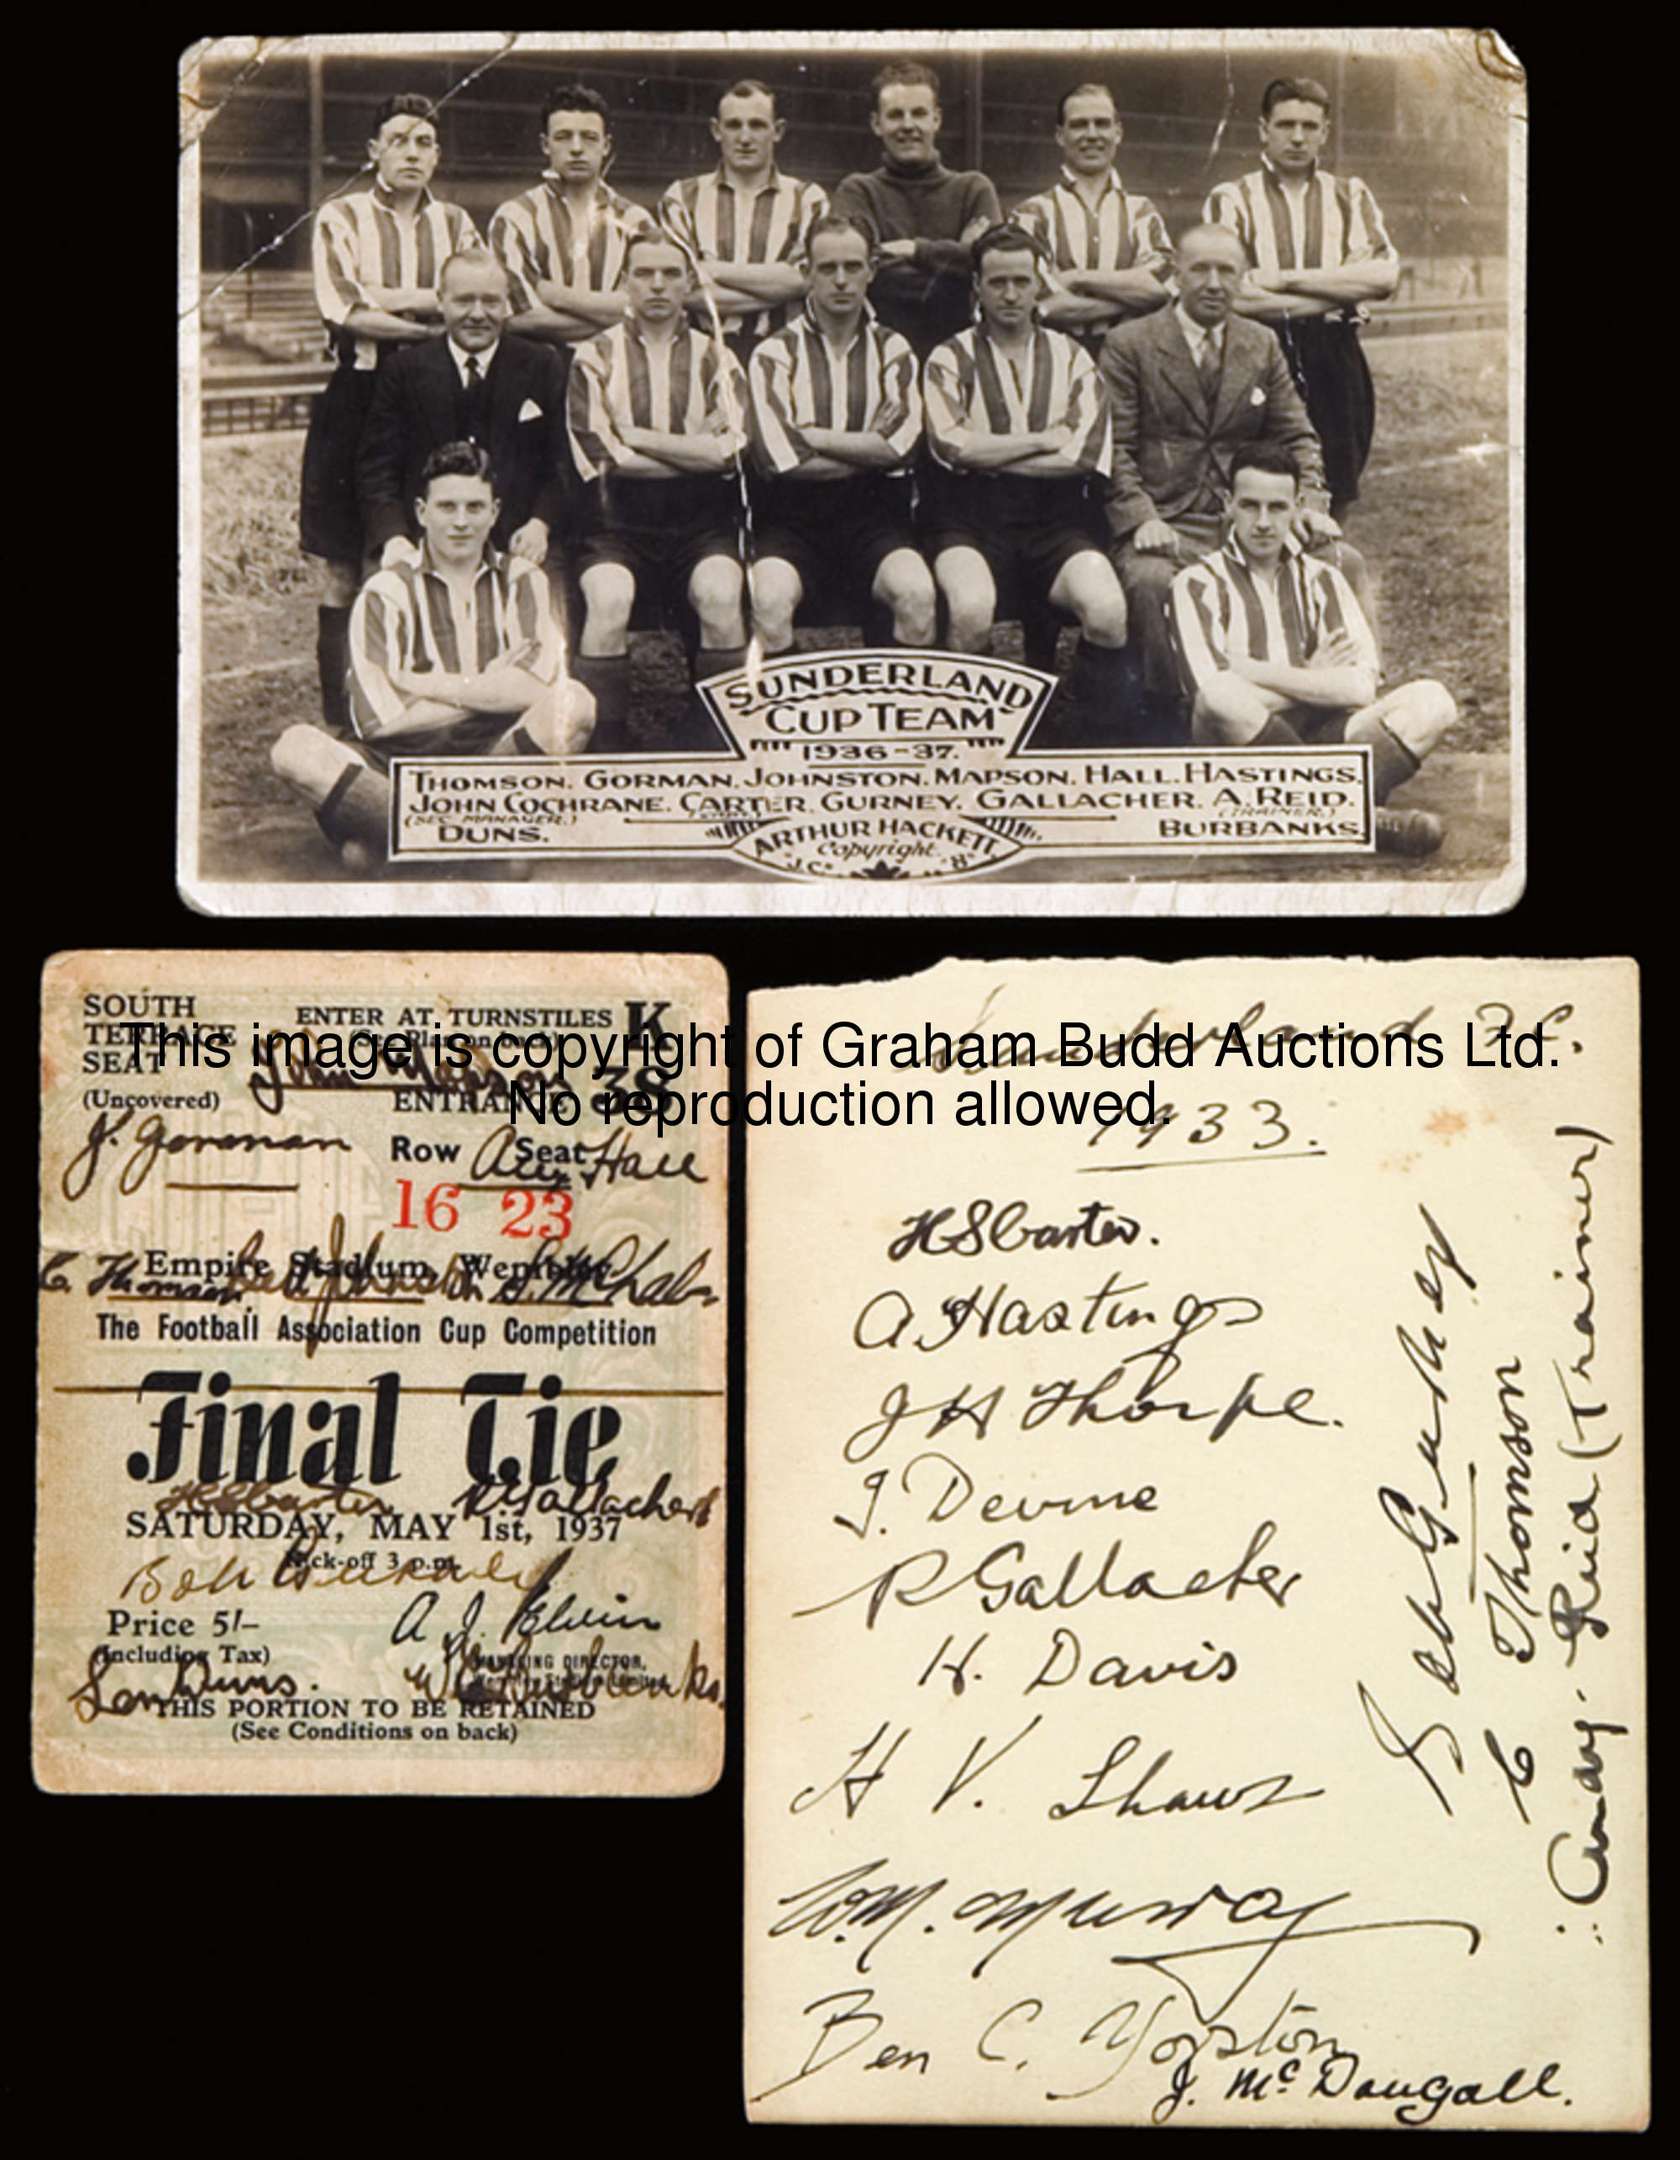 SUNDERLAND
CUP TEAM
1936-37.
THOMSON. GORMAN. JOHNSTON. MAPSON. HALL. HASTINGS.
JOHN COCHRANE. CARTER. GURNEY. GALLACHER. A. REID.
(SEC. MANAGER.) (TRAINER.)
DUNS. BURBANKS.
ARTHUR HACKETT
Copyright.
SOUTH
TERRACE
SEAT
(Uncovered)
ENTER AT TURNSTILES K
(See Plan on back)
John Mapson
ENTRANCE 38
J. Gorman
Row Seat
Alex Hall
16 23
Empire Stadium, Wembley
C. Thomson Bert Johnston S. McNab
The Football Association Cup Competition
Final Tie
HS Carter R Gallacher
SATURDAY, MAY 1st, 1937
Kick-off 3 p.m.
Bob Gurney
Price 5/-
(Including Tax)
A. J. Elvin
MANAGING DIRECTOR,
Len Duns.
THIS PORTION TO BE RETAINED
(See Conditions on back)
Sunderland F.C.
1933.
HS Carter.
A. Hastings
J H Thorpe.
J. Devine
R Gallacher
H. Davis
H V. Shaw
Wm. Murray
Ben C. Yorston
J. McDougall.
Bob Gurney
C Thomson
Anday. Reid (Trainer)
This image is copyright of Graham Budd Auctions Ltd.
No reproduction allowed.